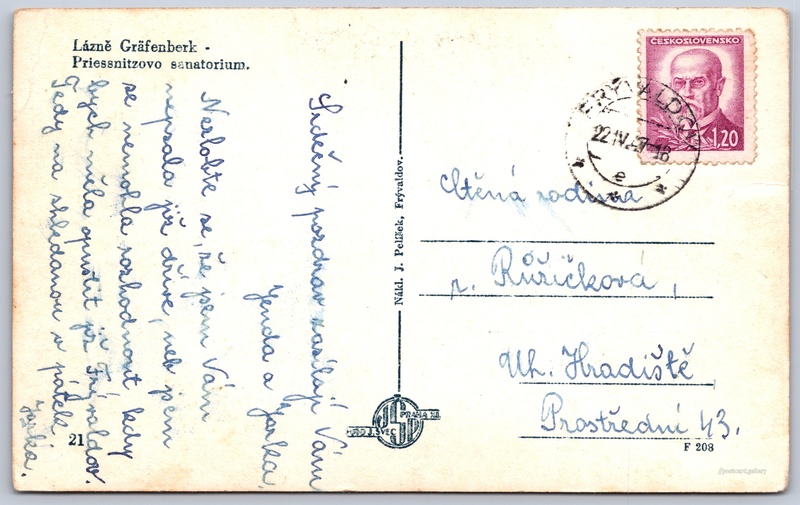 Lázně Gräfenberk -
Priessnitzovo sanatorium.
Srdečný pozdrav zasílají Vám
Jenda a Jarka.
Nezlobte se, že jsem Vám
nepsala již dříve, neb jsem
se nemohla rozhodnout kdy
bych měla opustit již Frývaldov.
Tedy na shledanou v pátek
Jarka.
21
Nákl. J. Pelíšek, Frývaldov.
PRAHA XII.
FOTO J. ŠVEC
ČESKOSLOVENSKO
1,20
FRÝVALDOV
22.IV.47-18
e
Ctěná rodina
p. Růžičková,
Uh. Hradiště,
Prostřední 43.
F 208